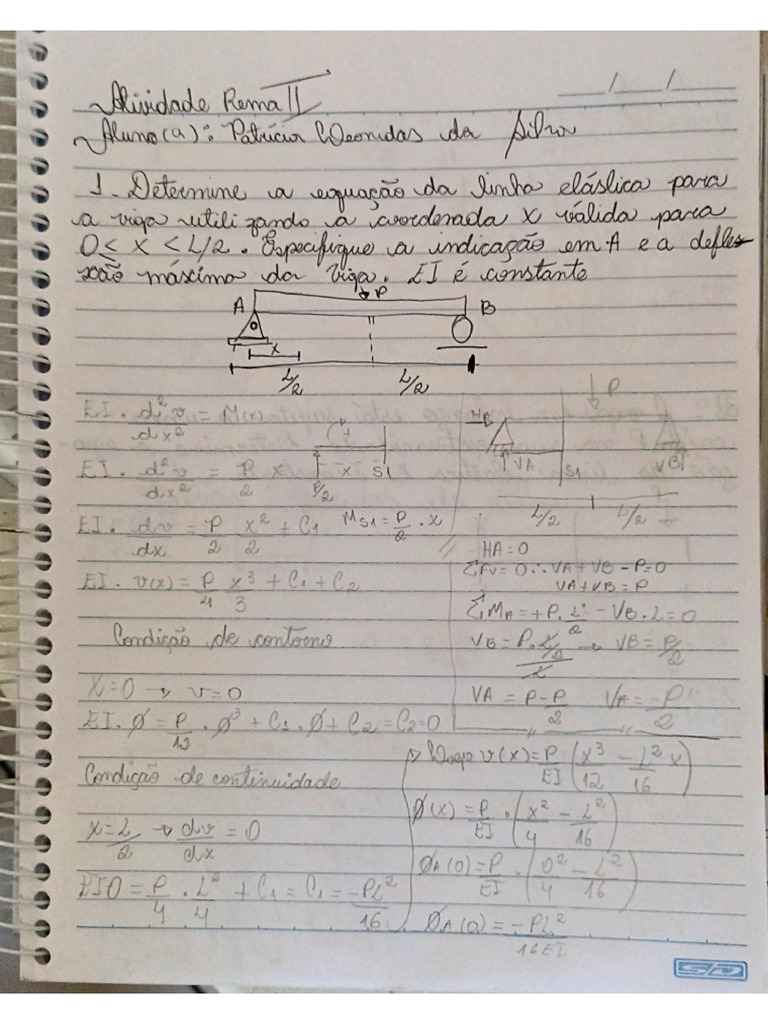 Atividade Rema II
Aluno(a): Patrícia Leonidas da Silva
1. Determine a equação da linha elástica para
a viga utilizando a coordenada X válida para
0 ≤ X < L/2. Especifique a indicação em A e a defle-
xão máxima da viga. EI é constante
P
A B
x
L/2 L/2
EI. d²v/dx² = M(x)
EI. d²v/dx² = P/2 x
P/2 x S1
EI. dv/dx = P/2 x²/2 + C1 M_S1 = P/2 . x
EI. v(x) = P/4 x³/3 + C1 + C2
Condição de contorno
X=0 → v=0
EI. 0 = P/12 . 0³ + C1. 0 + C2 = C2=0
Condição de continuidade
x = L/2 → dv/dx = 0
EI0 = P/4 . L²/4 + C1 = C1 = -PL²/16
P
HA
VA S1 VB
L/2 L/2
HA = 0
ΣFv = 0 ∴ VA + VB - P = 0
VA + VB = P
ΣMA = +P. L/2 - VB . L = 0
VB = P. L/2 / L → VB = P/2
VA = P - P/2 VA = -P/2
→ Logo v(x) = P/EI (x³/12 - L²/16 x)
Ø(x) = P/EI . (x²/4 - L²/16)
ØA(0) = P/EI . (0²/4 - L²/16)
ØA(0) = -PL²/16EI
SD